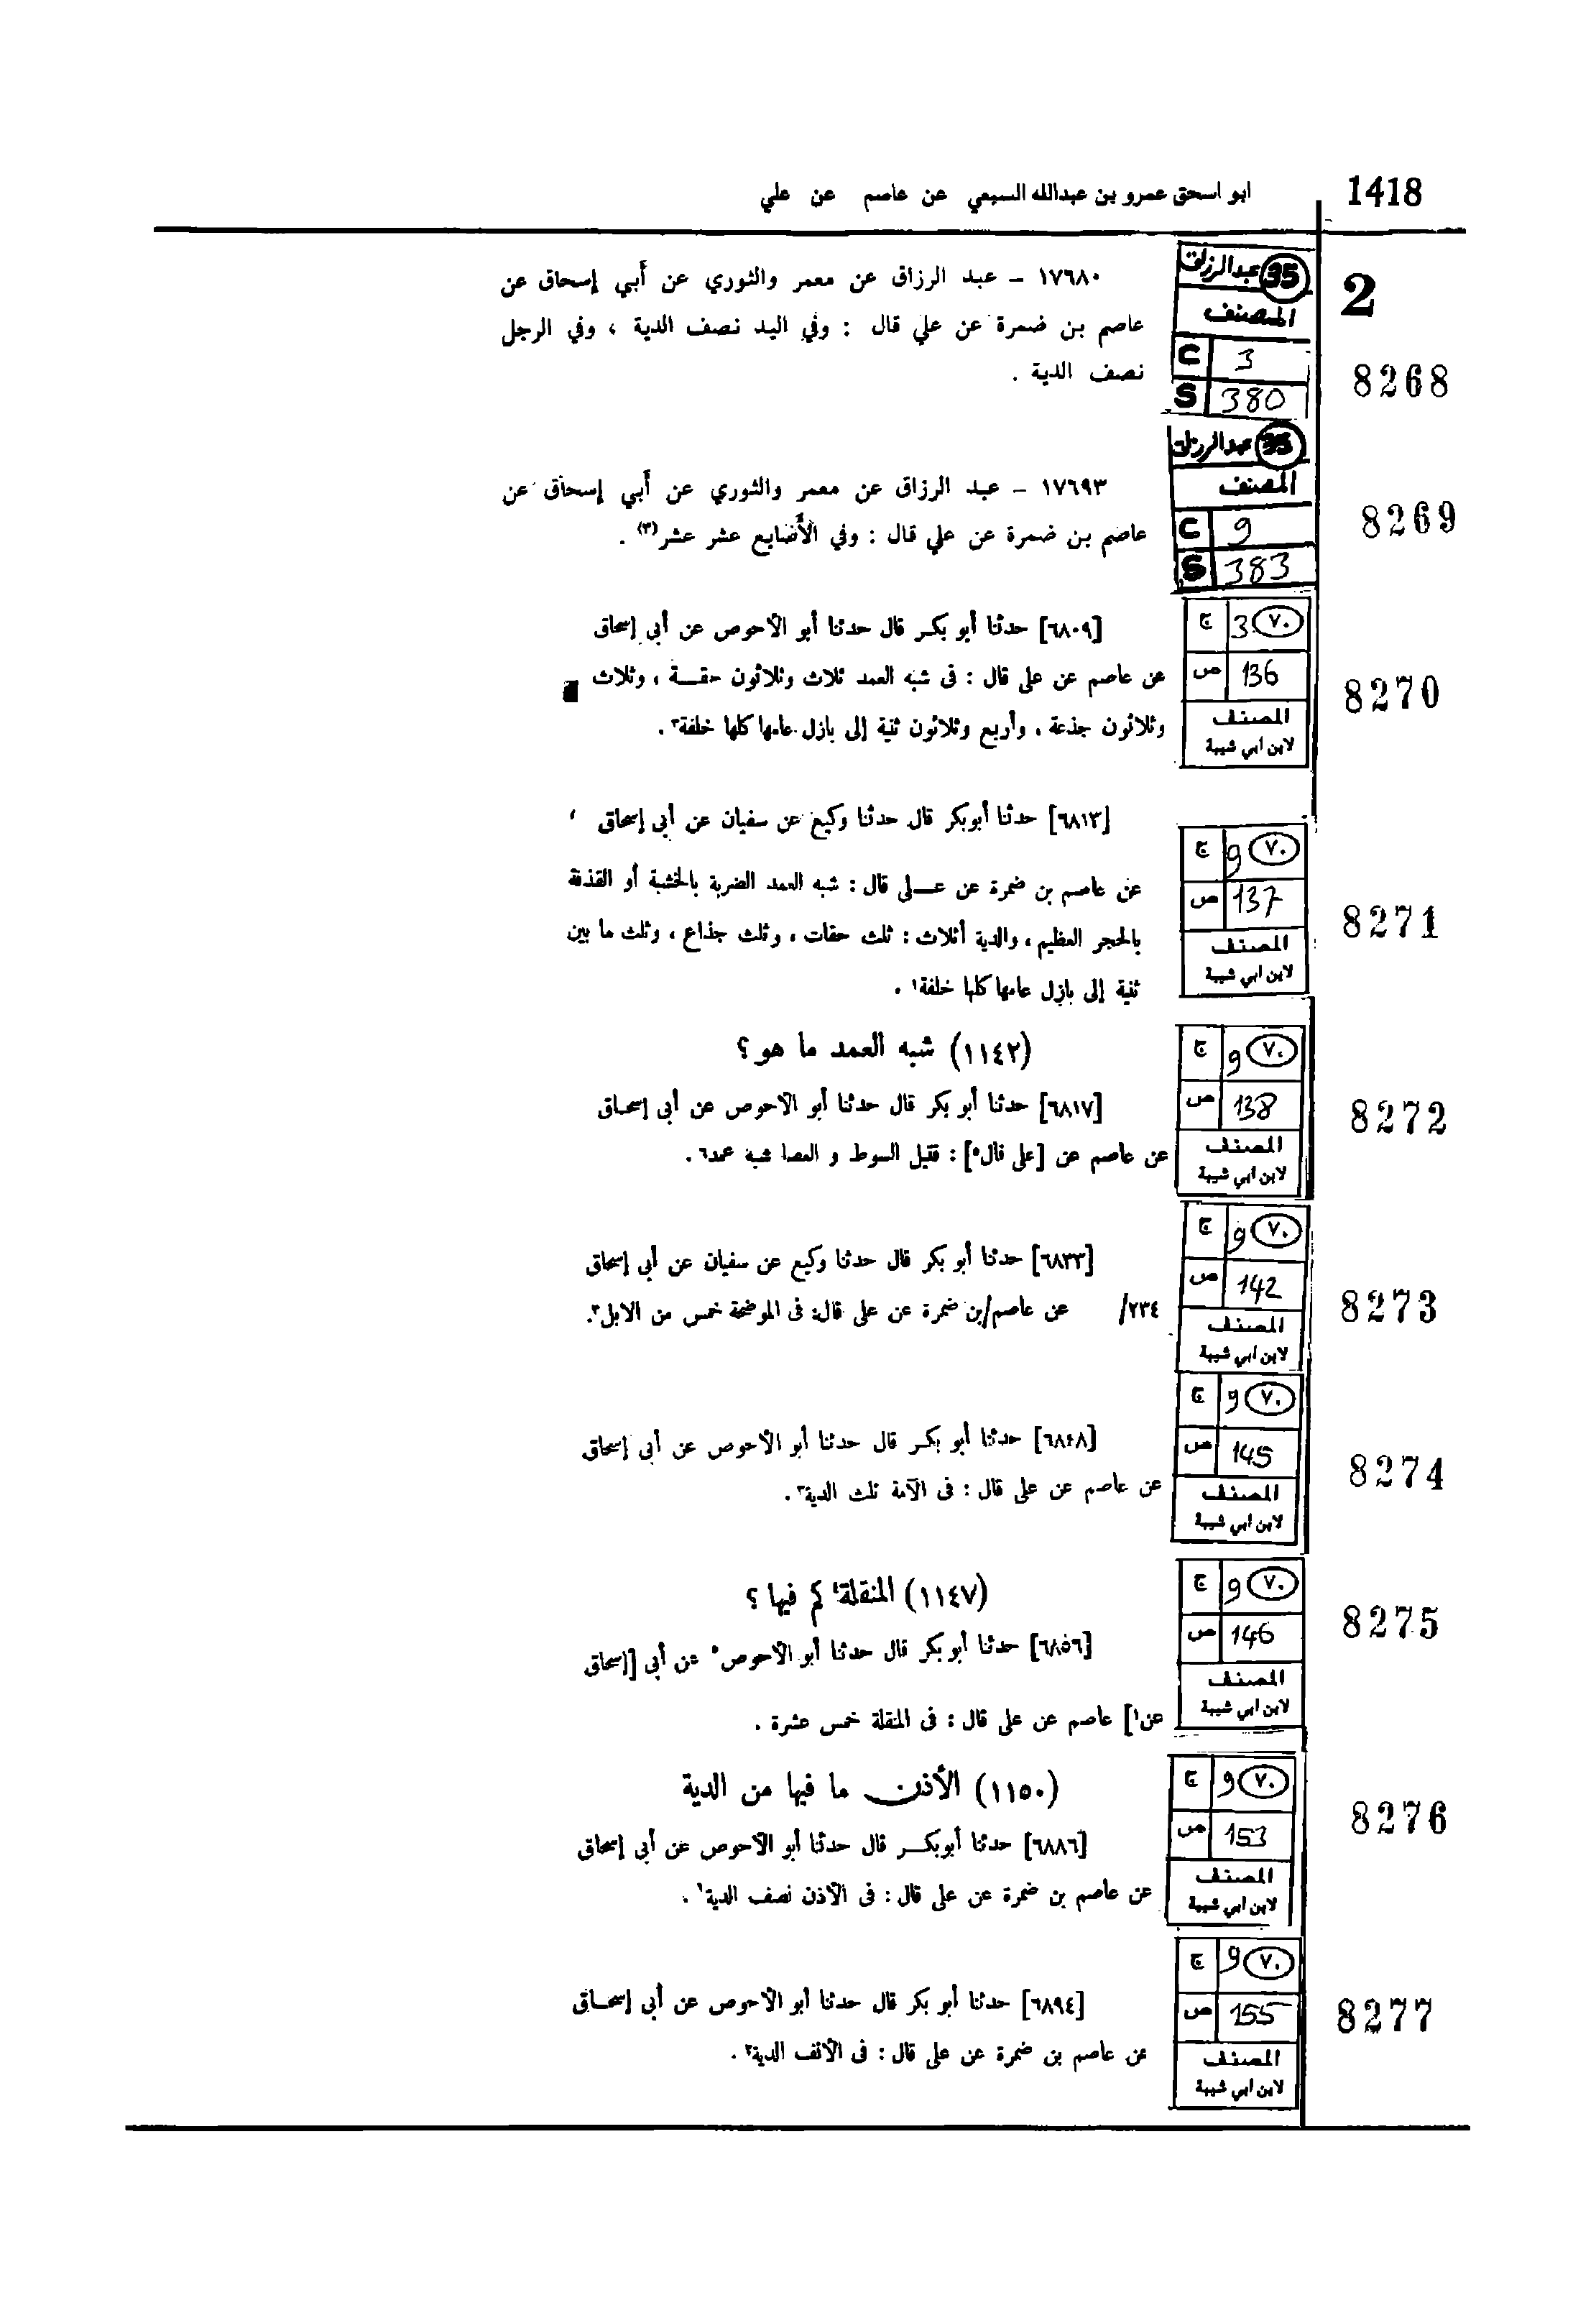 1418
ابو اسحق عمرو بن عبدالله السبعي عن عاصم عن علي
2
8268
35 عبدالرزاق
المصنف
C 3
S 380
١٧٦٨٠ – عبد الرزاق عن معمر والثوري عن أبي إسحاق عن
عاصم بن ضمرة عن علي قال : وفي اليد نصف الدية ، وفي الرجل
نصف الدية .
8269
35 عبدالرزاق
المصنف
C 9
S 383
١٧٦٩٣ – عبد الرزاق عن معمر والثوري عن أبي إسحاق عن
عاصم بن ضمرة عن علي قال : وفي الأصابع عشر عشر(٣) .
8270
٧٠ 3 ج
136 ص
المصنف
لابن ابي شيبة
[٦٨٠٩] حدثنا أبو بكر قال حدثنا أبو الأحوص عن أبى إسحاق
عن عاصم عن على قال : فى شبه العمد ثلاث وثلاثون حقة ، وثلاث
وثلاثون جذعة ، وأربع وثلاثون ثنية إلى بازل عامها كلها خلفة٣ .
8271
٧٠ 9 ج
137 ص
المصنف
لابن ابي شيبة
[٦٨١٣] حدثنا أبوبكر قال حدثنا وكيع عن سفيان عن أبى إسحاق
عن عاصم بن ضمرة عن على قال : شبه العمد الضربة بالخشبة أو القذفة
بالحجر العظيم ، والدية أثلاث : ثلث حقات ، وثلث جذاع ، وثلث ما بين
ثنية إلى بازل عامها كلها خلفة١ .
8272
٧٠ 9 ج
138 ص
المصنف
لابن ابي شيبة
(١١٤٢) شبه العمد ما هو ؟
[٦٨١٧] حدثنا أبو بكر قال حدثنا أبو الأحوص عن أبى إسحاق
عن عاصم عن [على قال٥] : قتيل السوط و العصا شبه عمد٦ .
8273
٧٠ 9 ج
142 ص
المصنف
لابن ابي شيبة
[٦٨٣٣] حدثنا أبو بكر قال حدثنا وكيع عن سفيان عن أبى إسحاق
٢٣٤/ عن عاصم/بن ضمرة عن على قال: فى الموضحة خمس من الابل٣.
8274
٧٠ 9 ج
145 ص
المصنف
لابن ابي شيبة
[٦٨٤٨] حدثنا أبو بكر قال حدثنا أبو الأحوص عن أبى إسحاق
عن عاصم عن على قال : فى الآمة ثلث الدية٣ .
8275
٧٠ 9 ج
146 ص
المصنف
لابن ابي شيبة
(١١٤٧) المنقلة٤ كم فيها ؟
[٦٨٥٦] حدثنا أبو بكر قال حدثنا أبو الأحوص٥ عن أبى [إسحاق
عن١] عاصم عن على قال : فى المنقلة خمس عشرة .
8276
٧٠ 9 ج
153 ص
المصنف
لابن ابي شيبة
(١١٥٠) الأذن ما فيها من الدية
[٦٨٨٦] حدثنا أبوبكر قال حدثنا أبو الأحوص عن أبى إسحاق
عن عاصم بن ضمرة عن على قال : فى الأذن نصف الدية١ .
8277
٧٠ 9 ج
155 ص
المصنف
لابن ابي شيبة
[٦٨٩٤] حدثنا أبو بكر قال حدثنا أبو الأحوص عن أبى إسحاق
عن عاصم بن ضمرة عن على قال : فى الأنف الدية٢ .